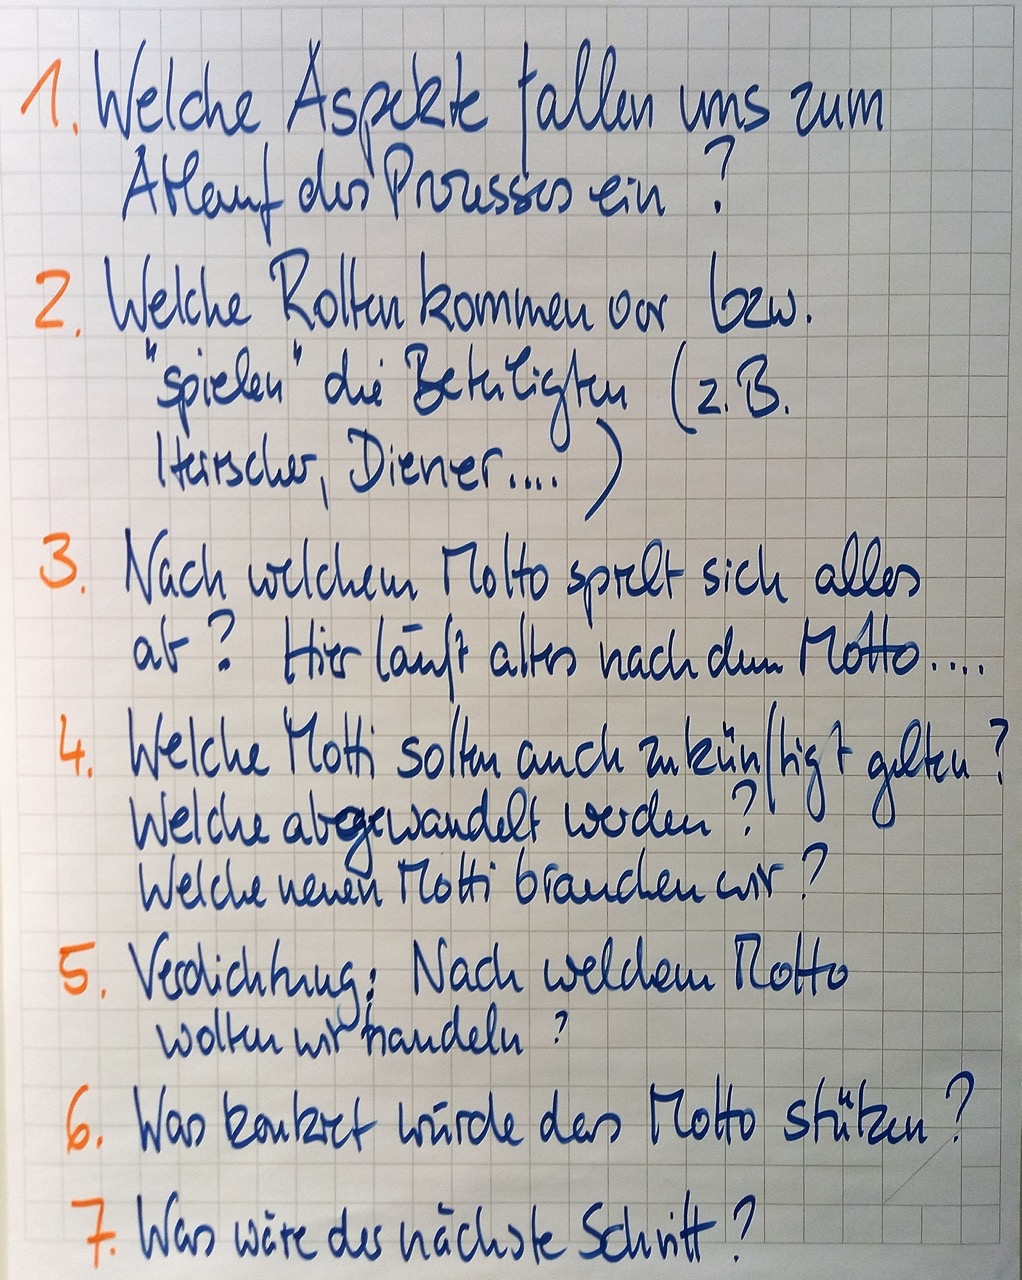 1. Welche Aspekte fallen uns zum
Ablauf des Prozesses ein ?
2. Welche Rollen kommen vor bzw.
"spielen" die Beteiligten (z.B.
Herrscher, Diener.... )
3. Nach welchem Motto spielt sich alles
ab? Hier läuft alles nach dem Motto....
4. Welche Motti sollen auch zukünftigt gelten?
Welche abgewandelt werden ?
Welche neuen Motti brauchen wir ?
5. Verdichtung: Nach welchem Motto
wollen wir handeln ?
6. Was konkret würde das Motto stützen ?
7. Was wäre der nächste Schritt ?